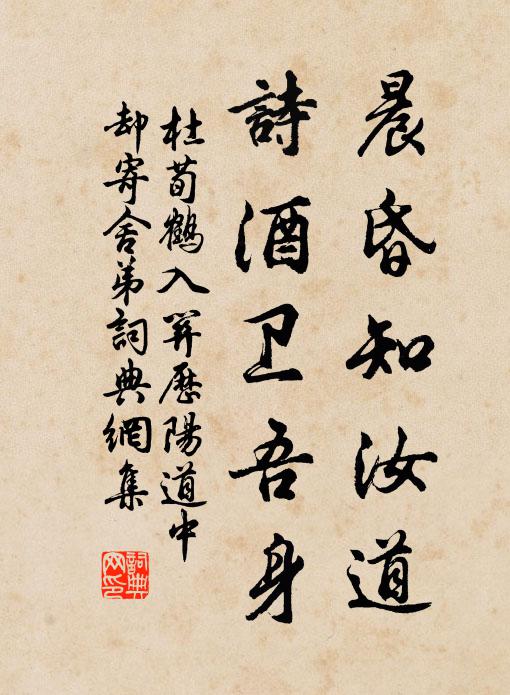 晨昏知汝道
詩酒卫吾身
杜荀鶴入關歷陽道中
却寄舍弟詞典網集
詞典
网印